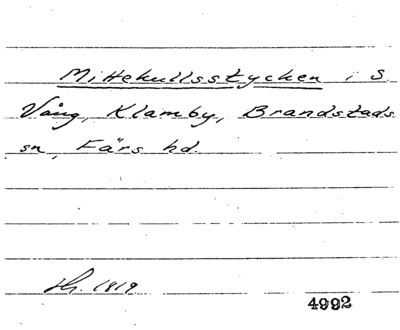 Mittekullsstycken i S.
Vång, Klamby, Brandstads
sn, Färs hd.
1819.
4992